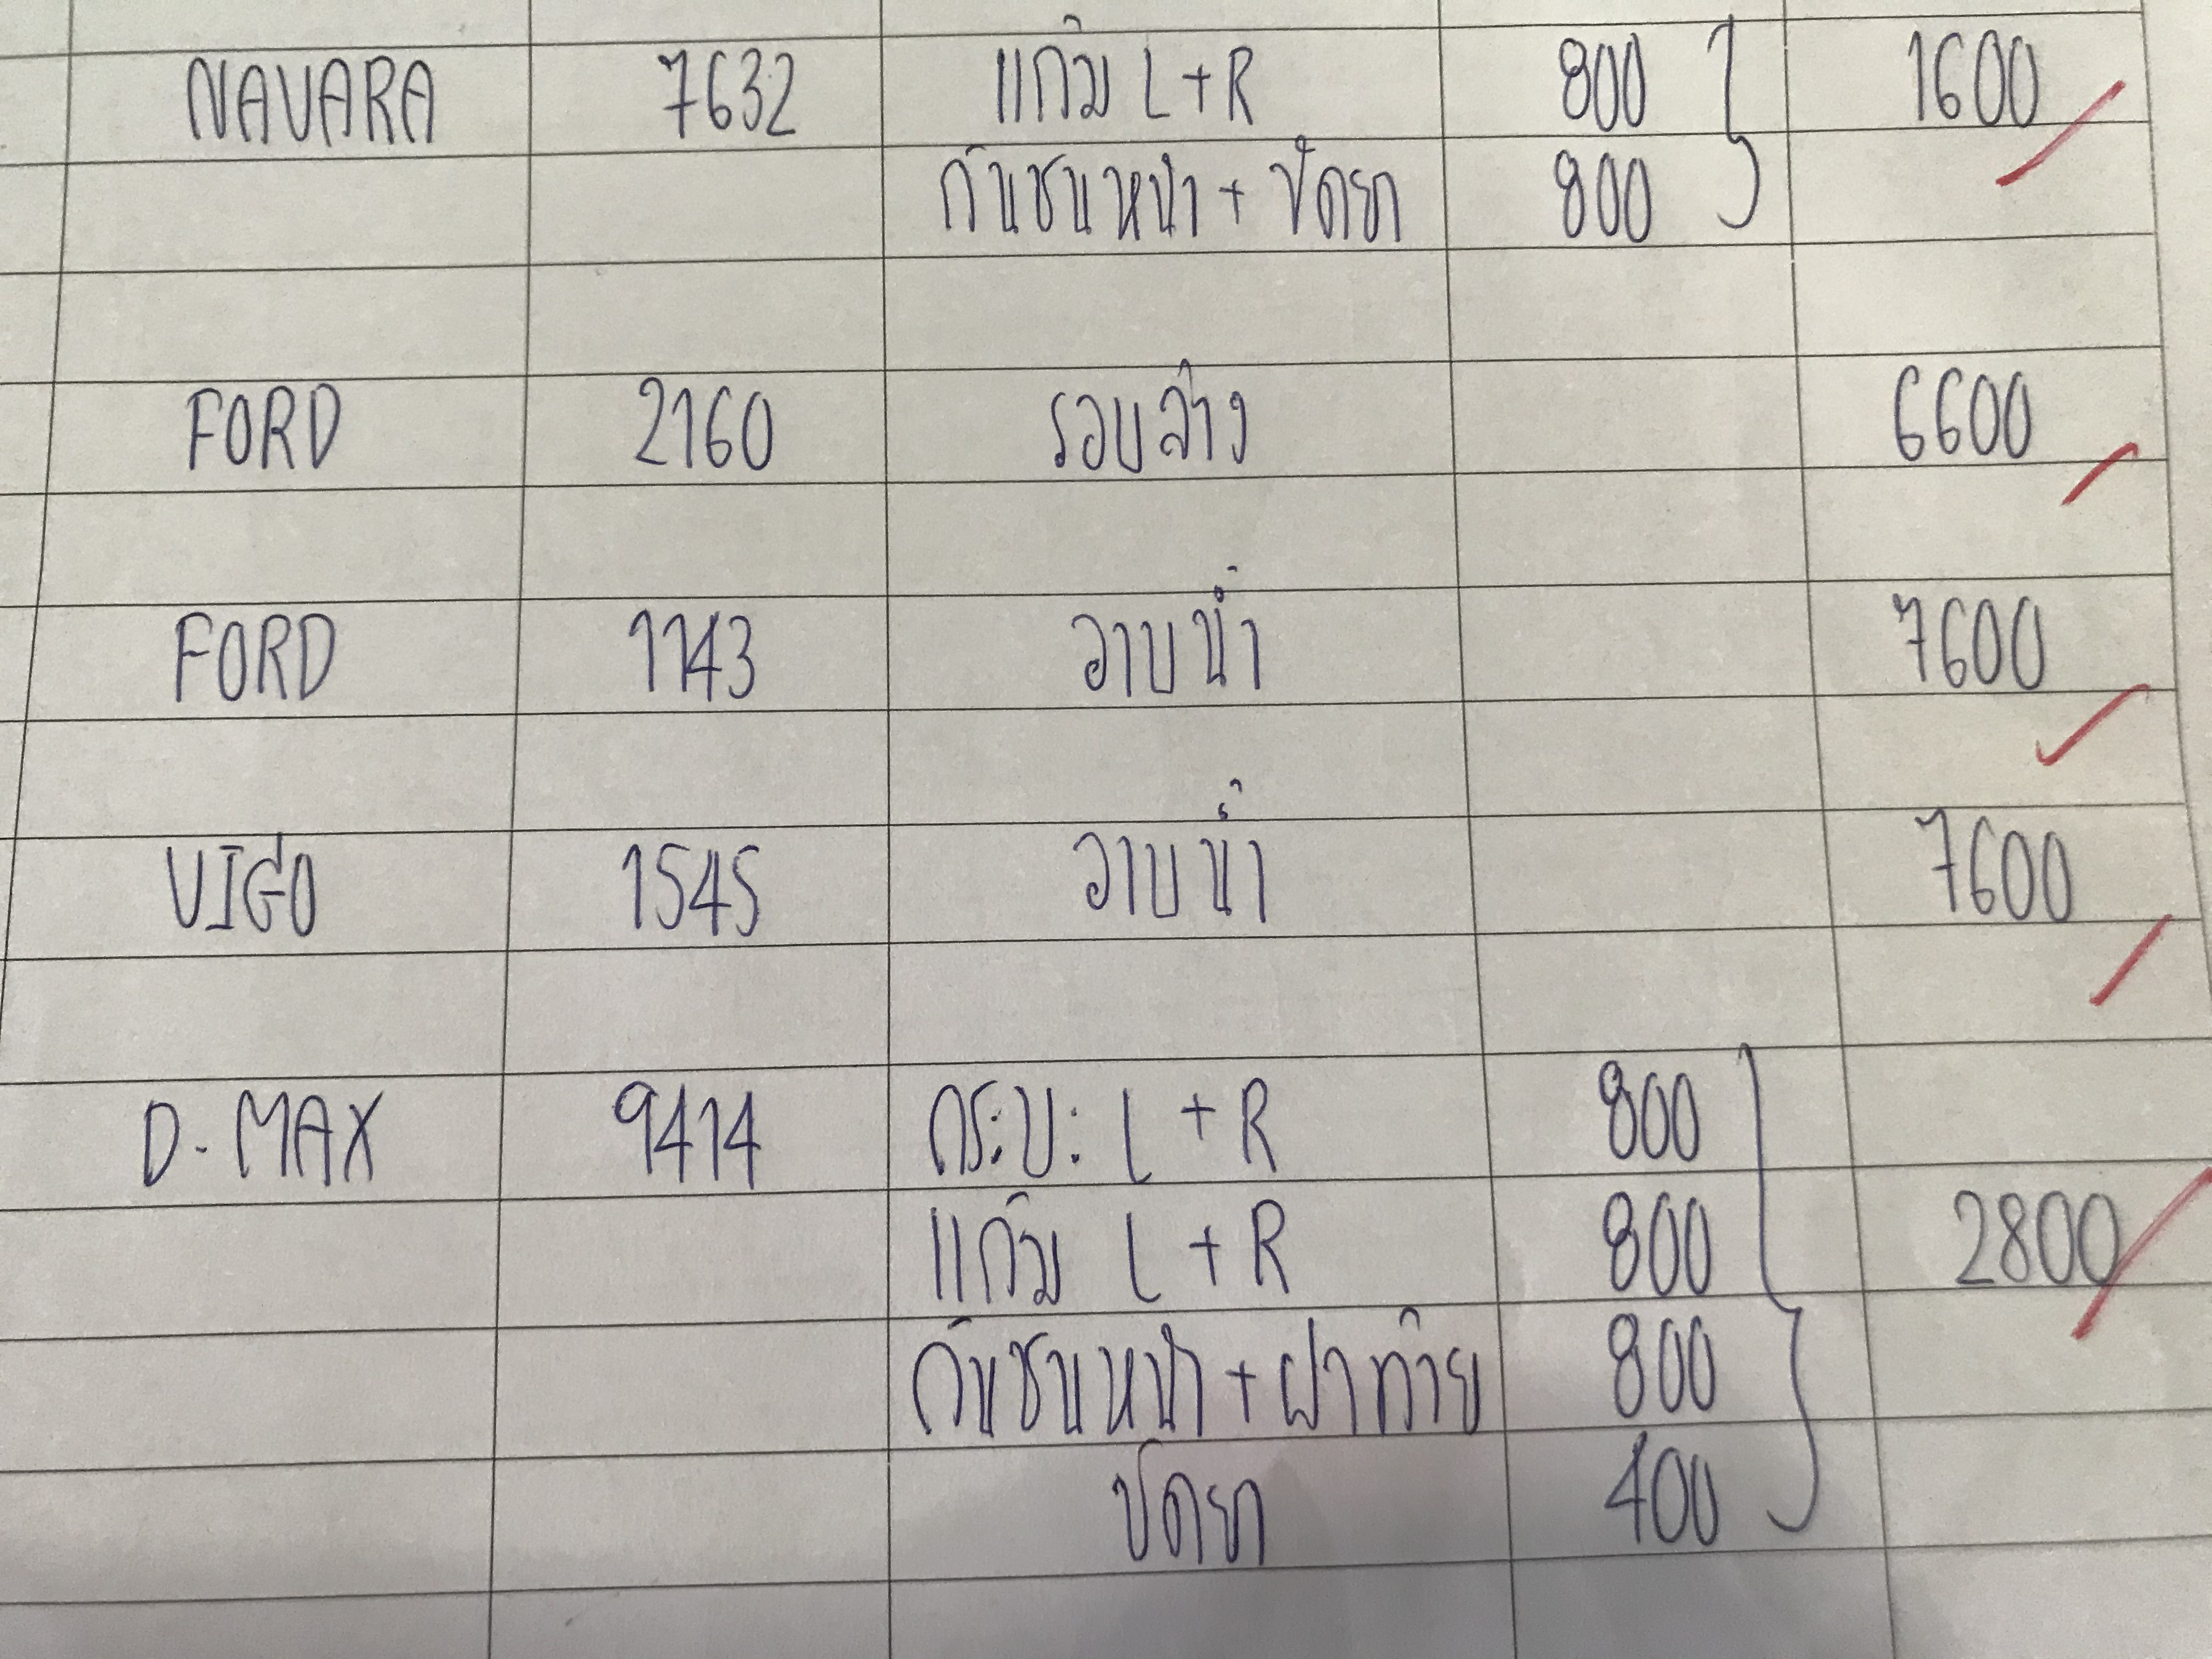 NAVARA 7632 แก้ม L+R 800 1600
กันชนหน้า + ขัดยา 800
FORD 2160 รอบล่าง 6600
FORD 1743 อาบน้ำ 7600
VIGO 1545 อาบน้ำ 7600
D-MAX 9414 กระบะ L+R 800
แก้ม L+R 800 2800
กันชนหน้า + ฝาท้าย 800
ขัดยา 400